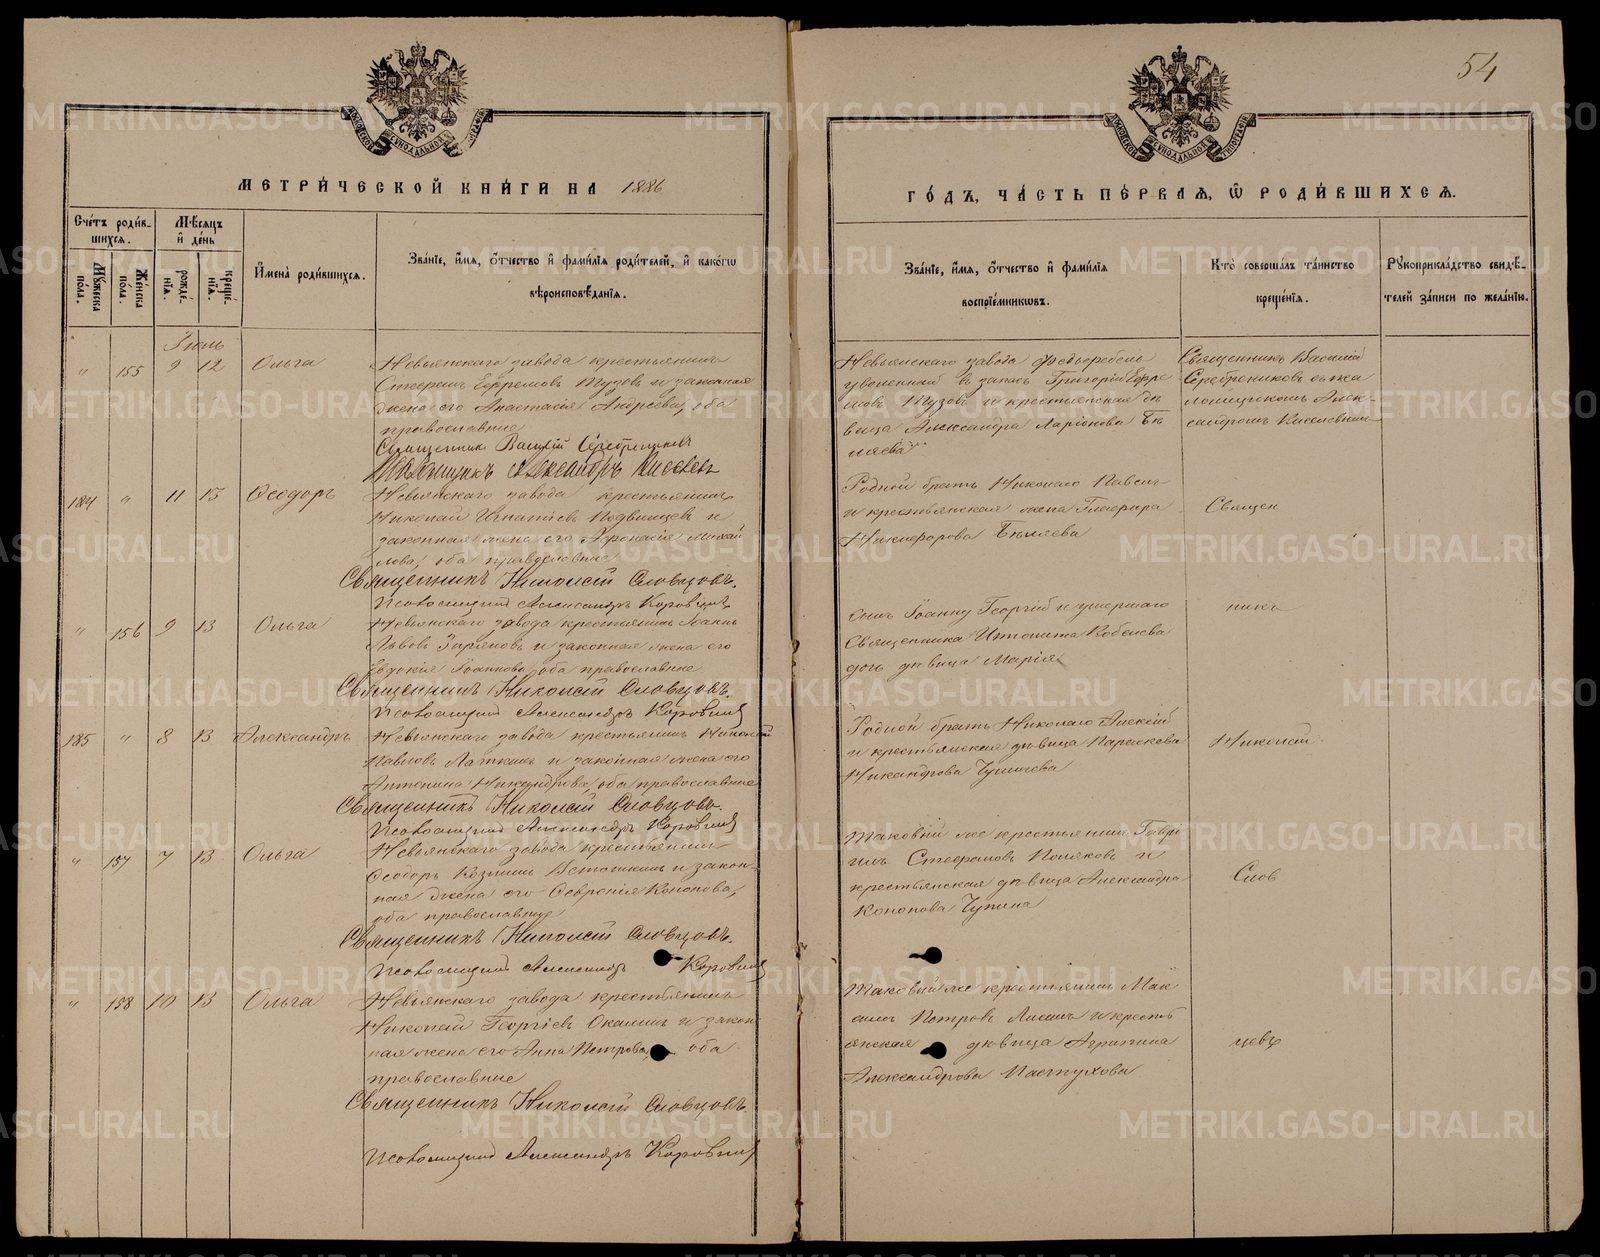 54
МЕТРИ́ЧЕСКОЙ КНИ́ГИ НА 1886
ГО́ДЪ, ЧА́СТЬ ПЕ́РВАѦ, Ѽ РОДИ́ВШИХСѦ.
Сче́тъ роди́в-
шихсѧ.
Мꙋ́жеска по́ла.
Же́нска по́ла.
Мѣ́сѧцъ и҆ де́нь
рожде́-
нїѧ.
креще́-
нїѧ.
И҆мена̀ роди́вшихсѧ.
Зва́нїе, и҆́мѧ, ѻ҆́тчество и҆ фами́лїѧ роди́телей, и҆ како́гѡ
вѣроисповѣ́данїѧ.
Зва́нїе, и҆́мѧ, ѻ҆́тчество и҆ фами́лїѧ
воспрїе́мникѡвъ.
Кто̀ соверша́лъ та́инство
креще́нїѧ.
Рꙋкоприкла́дство свидѣ́-
телей за́писи по жела́нїю.
Іюль
" 155 9 12 Ольга
Невьянскаго завода крестьянинъ
Стефанъ Ефремовъ Тузовъ и законная
жена его Анастасія Андреева, оба
православные
Священникъ Василій Серебренниковъ
Невьянскаго завода
уволенный въ запасъ Григорій Ефре
мовъ Тузовъ и крестьянская дѣ
вица Александра Ларіонова Бѣ
ляева
Священникъ Василій
Серебрениковъ съ пса
ломщикомъ Алек-
сандромъ
184 " 11 13 Ѳеодоръ
Невьянскаго завода крестьянинъ
Николай Игнатіевъ Подвинцевъ и
законная жена его Михай
лова, оба православные
Священникъ Николай Словцовъ.
Псаломщикъ Александръ Коровинъ
Родной братъ Николаю Павелъ
и крестьянская жена Глафира
Никифорова Бѣляева
Священ
" 156 9 13 Ольга
Невьянскаго завода крестьянинъ Іоаннъ
Львовъ и законная жена его
Евдокія Іоаннова, оба православные
Священникъ Николай Словцовъ.
Псаломщикъ Александръ Коровинъ
сынъ Іоанну Георгій и умершаго
Священника Ипполита Кобелева
дочь дѣвица Марія
никъ
185 " 8 13 Александръ
Невьянскаго завода крестьянинъ Николай
Павловъ и законная жена его
Антонина Никандрова, оба православные
Священникъ Николай Словцовъ.
Псаломщикъ Александръ Коровинъ
Родной братъ Николаю Алексій
и крестьянская дѣвица Параскева
Никандрова
Николай
" 157 7 13 Ольга
Невьянскаго завода крестьянинъ
Ѳеодоръ Козминъ и закон-
ная жена его Февронія Кононова,
оба православные
Священникъ Николай Словцовъ.
Псаломщикъ Александръ Коровинъ
Таковый же крестьянинъ Гаврі
илъ Стефановъ Поляковъ и
крестьянская дѣвица Александра
Кононова Чупина
Слов
" 158 10 13 Ольга
Невьянскаго завода крестьянинъ
Николай Георгіевъ и закон
ная жена его Анна Петрова, оба
православные
Священникъ Николай Словцовъ.
Псаломщикъ Александръ Коровинъ
Таковый же крестьянинъ Мак
симъ Петровъ и кресть
янская дѣвица Агрипина
Александрова Пастухова
цевъ